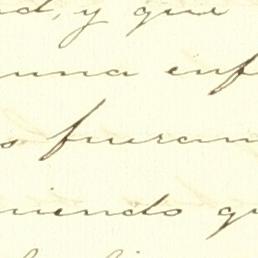 d, y que
una enf
s fueran
iendo qu